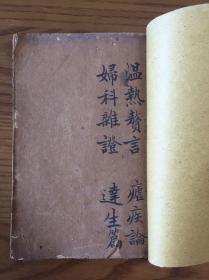 温熱贅言 瘧疾論
婦科雜證 達生篇